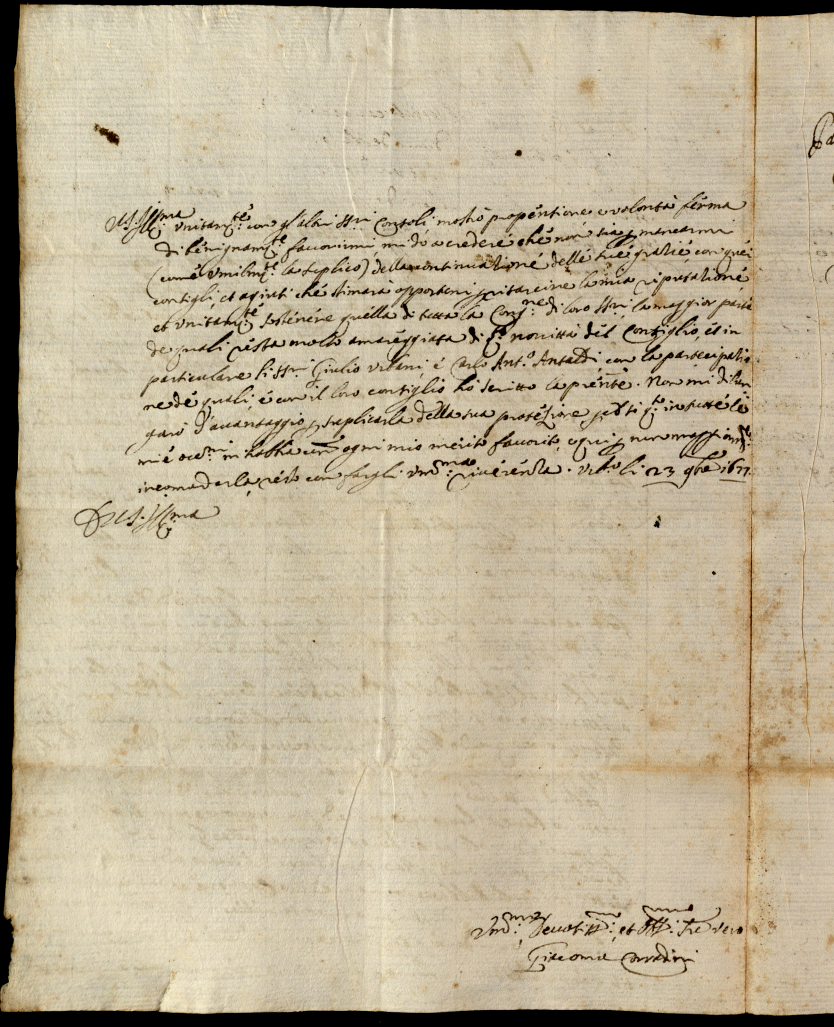 V.S. Ill.ma unitam.te con gl'altri SS.ri Consoli mostrò propentione e volontà ferma
di benignam.te favorirmi, mi do a credere che non sia p mancarmi
(come umilm.te la suplico) della continuatione delle sue gratie con quei
consigli, et agiuti che stimarà opportuni p ritarcire la mia riputatione
et unitam.te sostenere quella di tutta la Cong.ne di loro SS.ri la maggior parte
de quali resta molto amareggiata di q.ta novittà del Consiglio, et in
particulare li SS.ri Giulio Urbani, e Carlo Ant.o Antaldi con la participatio
ne de quali, e con il loro consiglio hò scritto la pnte. Non mi dilun
garò d'avantaggio p suplicarla della sua protezione
ogni mio merito favorito, e p non maggiorm.te
incomodarla, resto con fargli um.ma riverenza. li 23 9bre 1677
Di V.S. Ill.ma
Um.mo Devotiss.mo et Obb.mo Sre vero
Giacomo Corradini